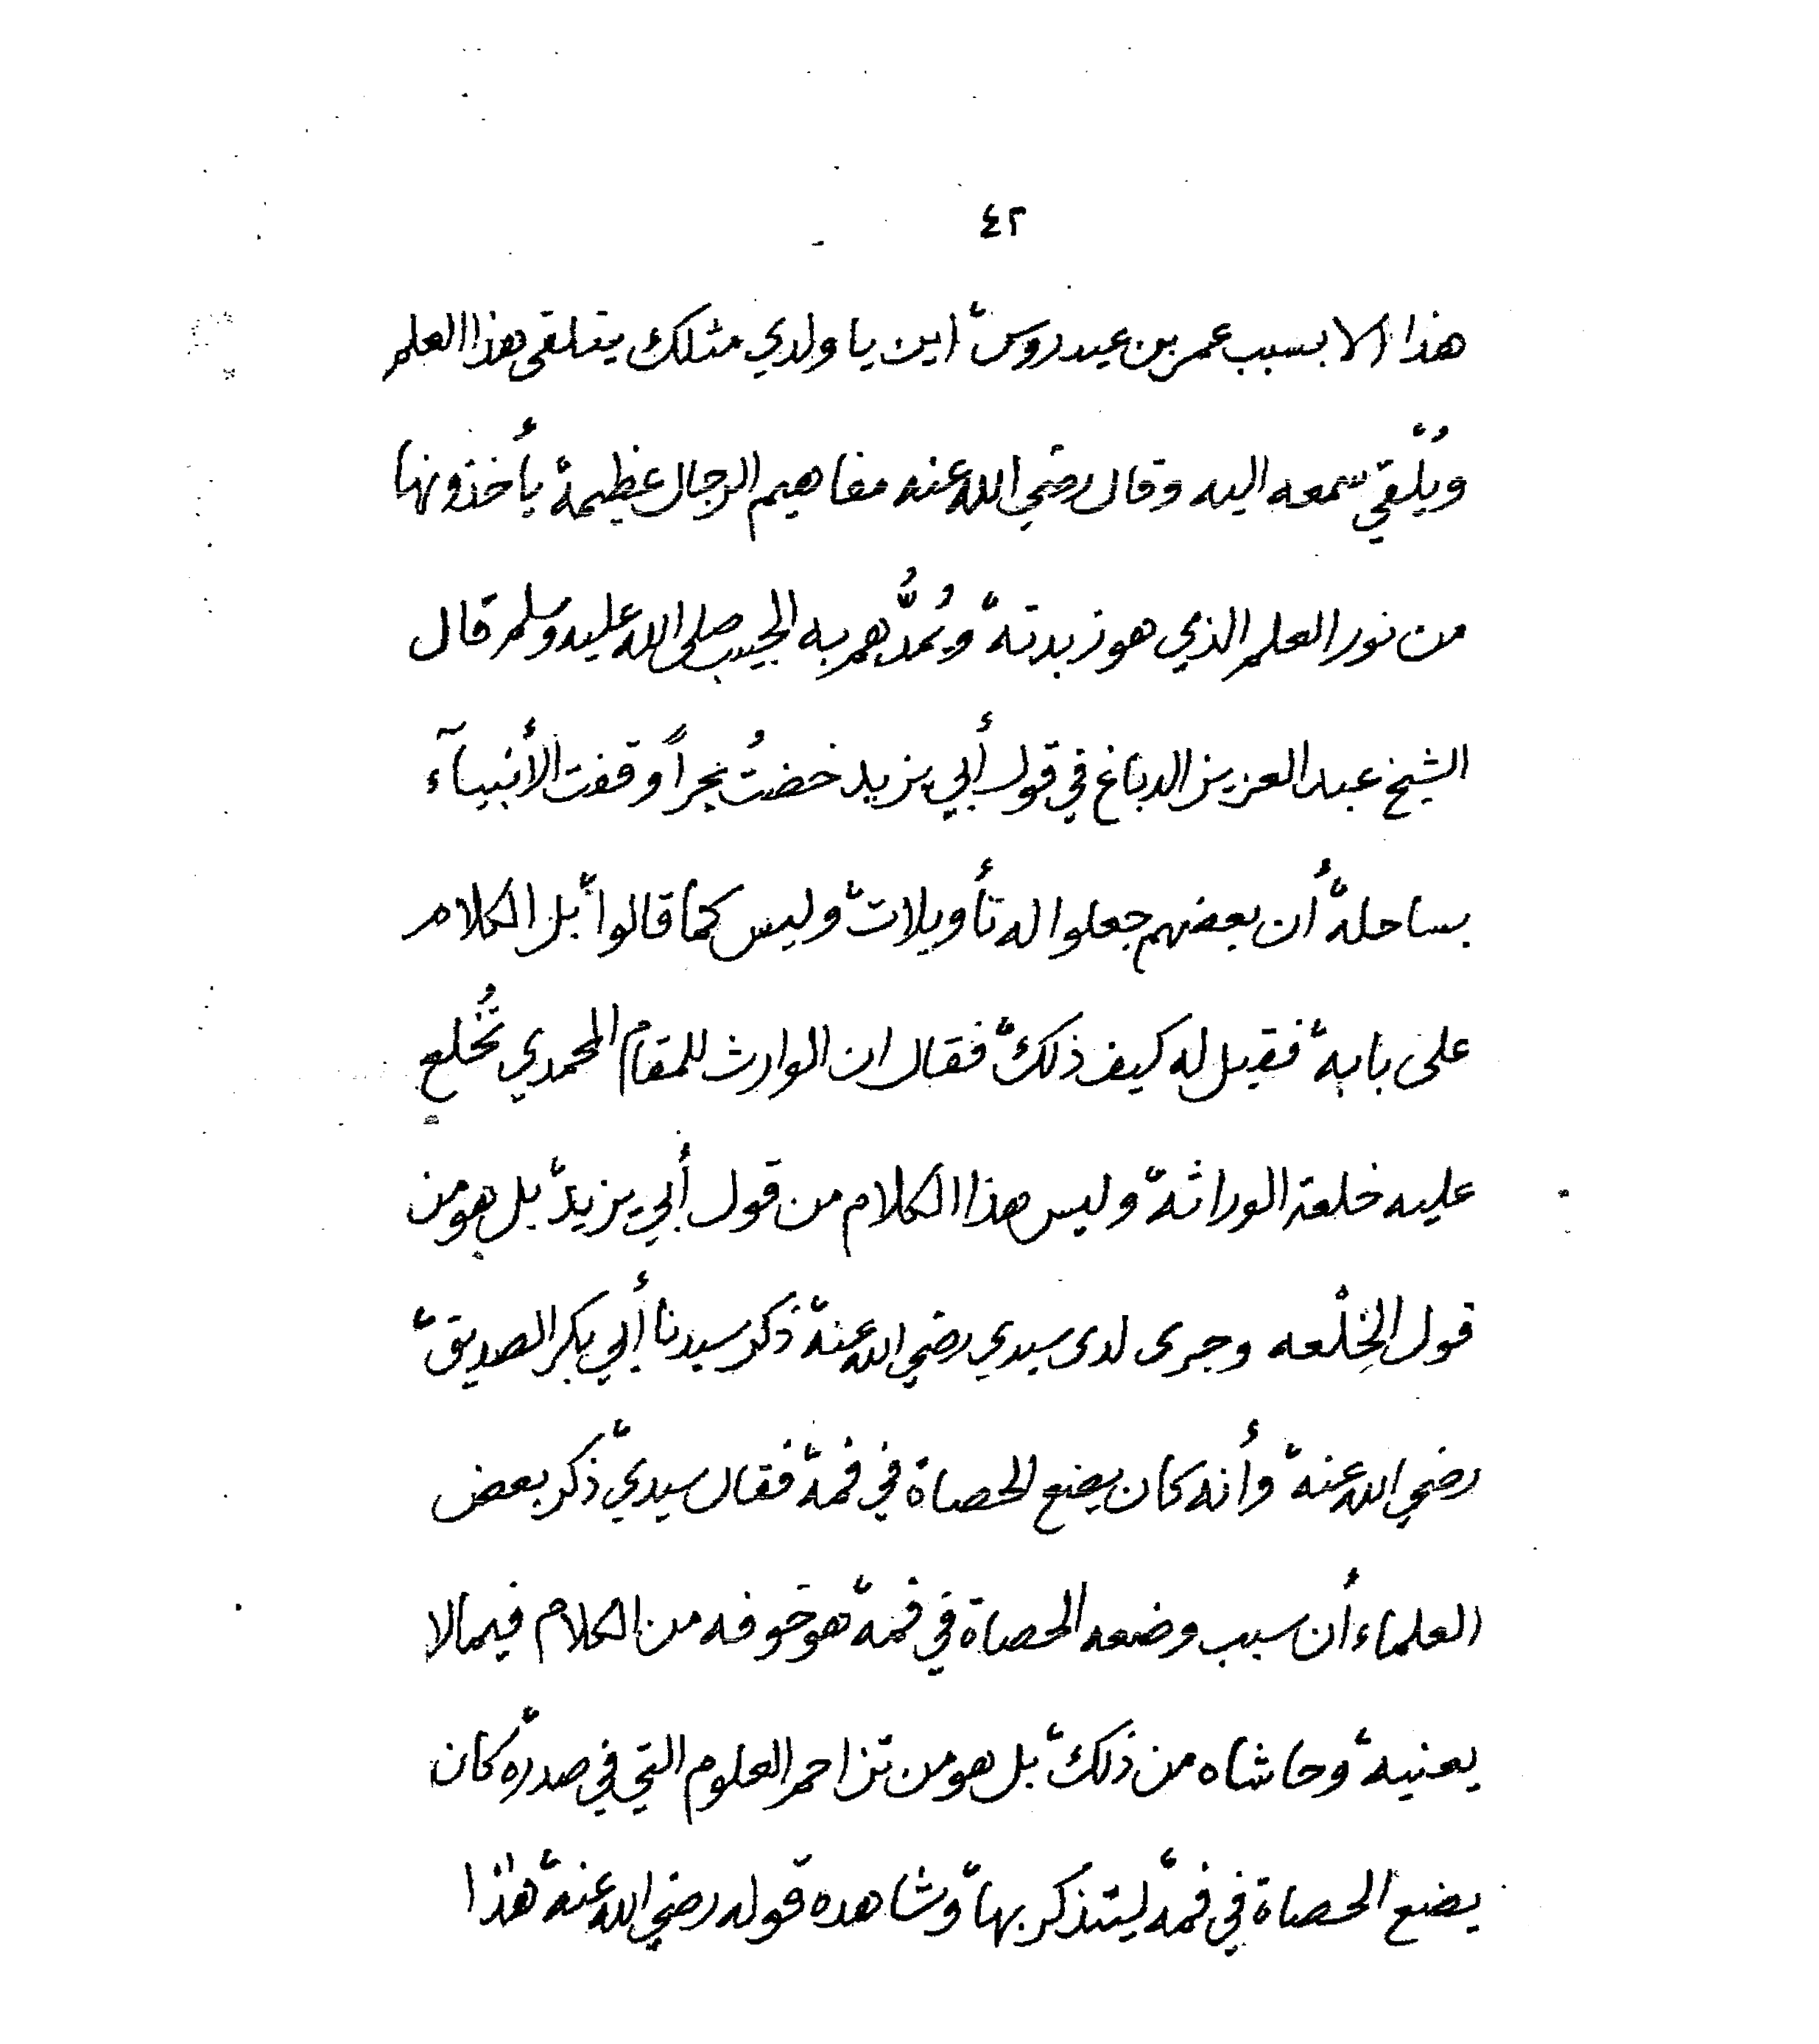 ٤٢
هذا الا بسبب عمر بن عيدروس، اين يا ولدي مثلك يتلقى هذا العلم
ويُلْقي سمعه اليه وقال رضي الله عنه مفاهيم الرجال عظيمة، يأخذونها
من نور العلم الذي هو زبدته، ويُمدُّهم به الحبيب صلى الله عليه وسلم قال
الشيخ عبد العزيز الدباغ في قول أبي يزيد خضتُ بحراً وقفت الأنبيآء
بساحله، أن بعضهم جعلوا له تأويلات، وليس كما قالوا، بل الكلام
على بابه، فقيل له كيف ذلك، فقال ان الوارث للمقام المحمدي تُخلع
عليه خلعة الوراثة، وليس هذا الكلام من قول أبي يزيد، بل هو من
قول الخِلْعه وجرى لدى سيدي رضي الله عنه، ذكر سيدنا أبي بكر الصديق،
رضي الله عنه، وأنه كان يضع الحصاة في فمه، فقال سيدي، ذكر بعض
العلماء أن سبب وضعه الحصاة في فمه، هو خوفه من الكلام فيما لا
يعنيه، وحاشاه من ذلك، بل هو من تزاحم العلوم التي في صدره، كان
يضع الحصاة في فمه، ليتذكر بها، وشاهده قوله رضي الله عنه، هذا